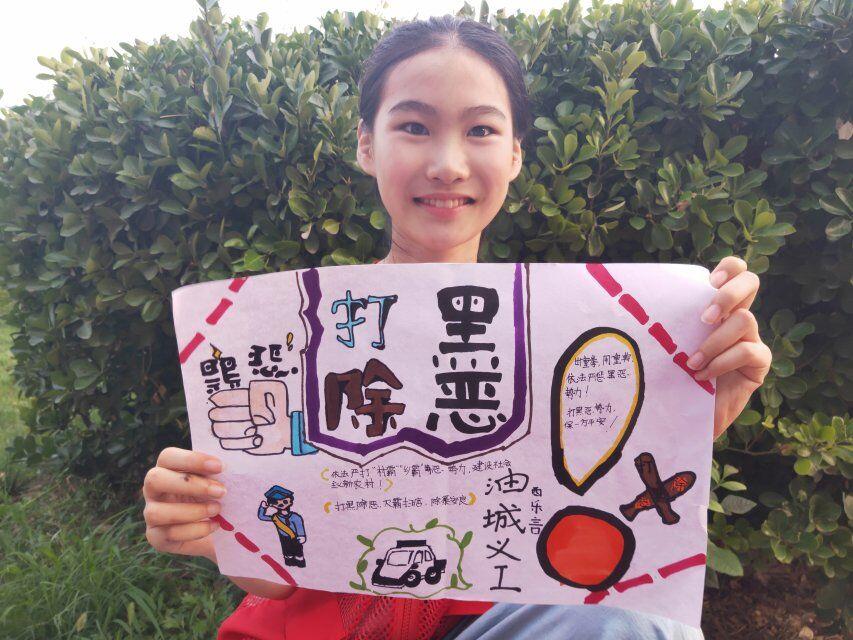 打黑
除恶
黑恶
出重拳,用重典,
依法严惩黑恶
势力!
打黑恶势力,
保一方平安!
依法严打"村霸""乡霸"黑恶势力,建设社会
主义新农村!
打黑除恶,灭霸扫痞,除暴安良
油城义工